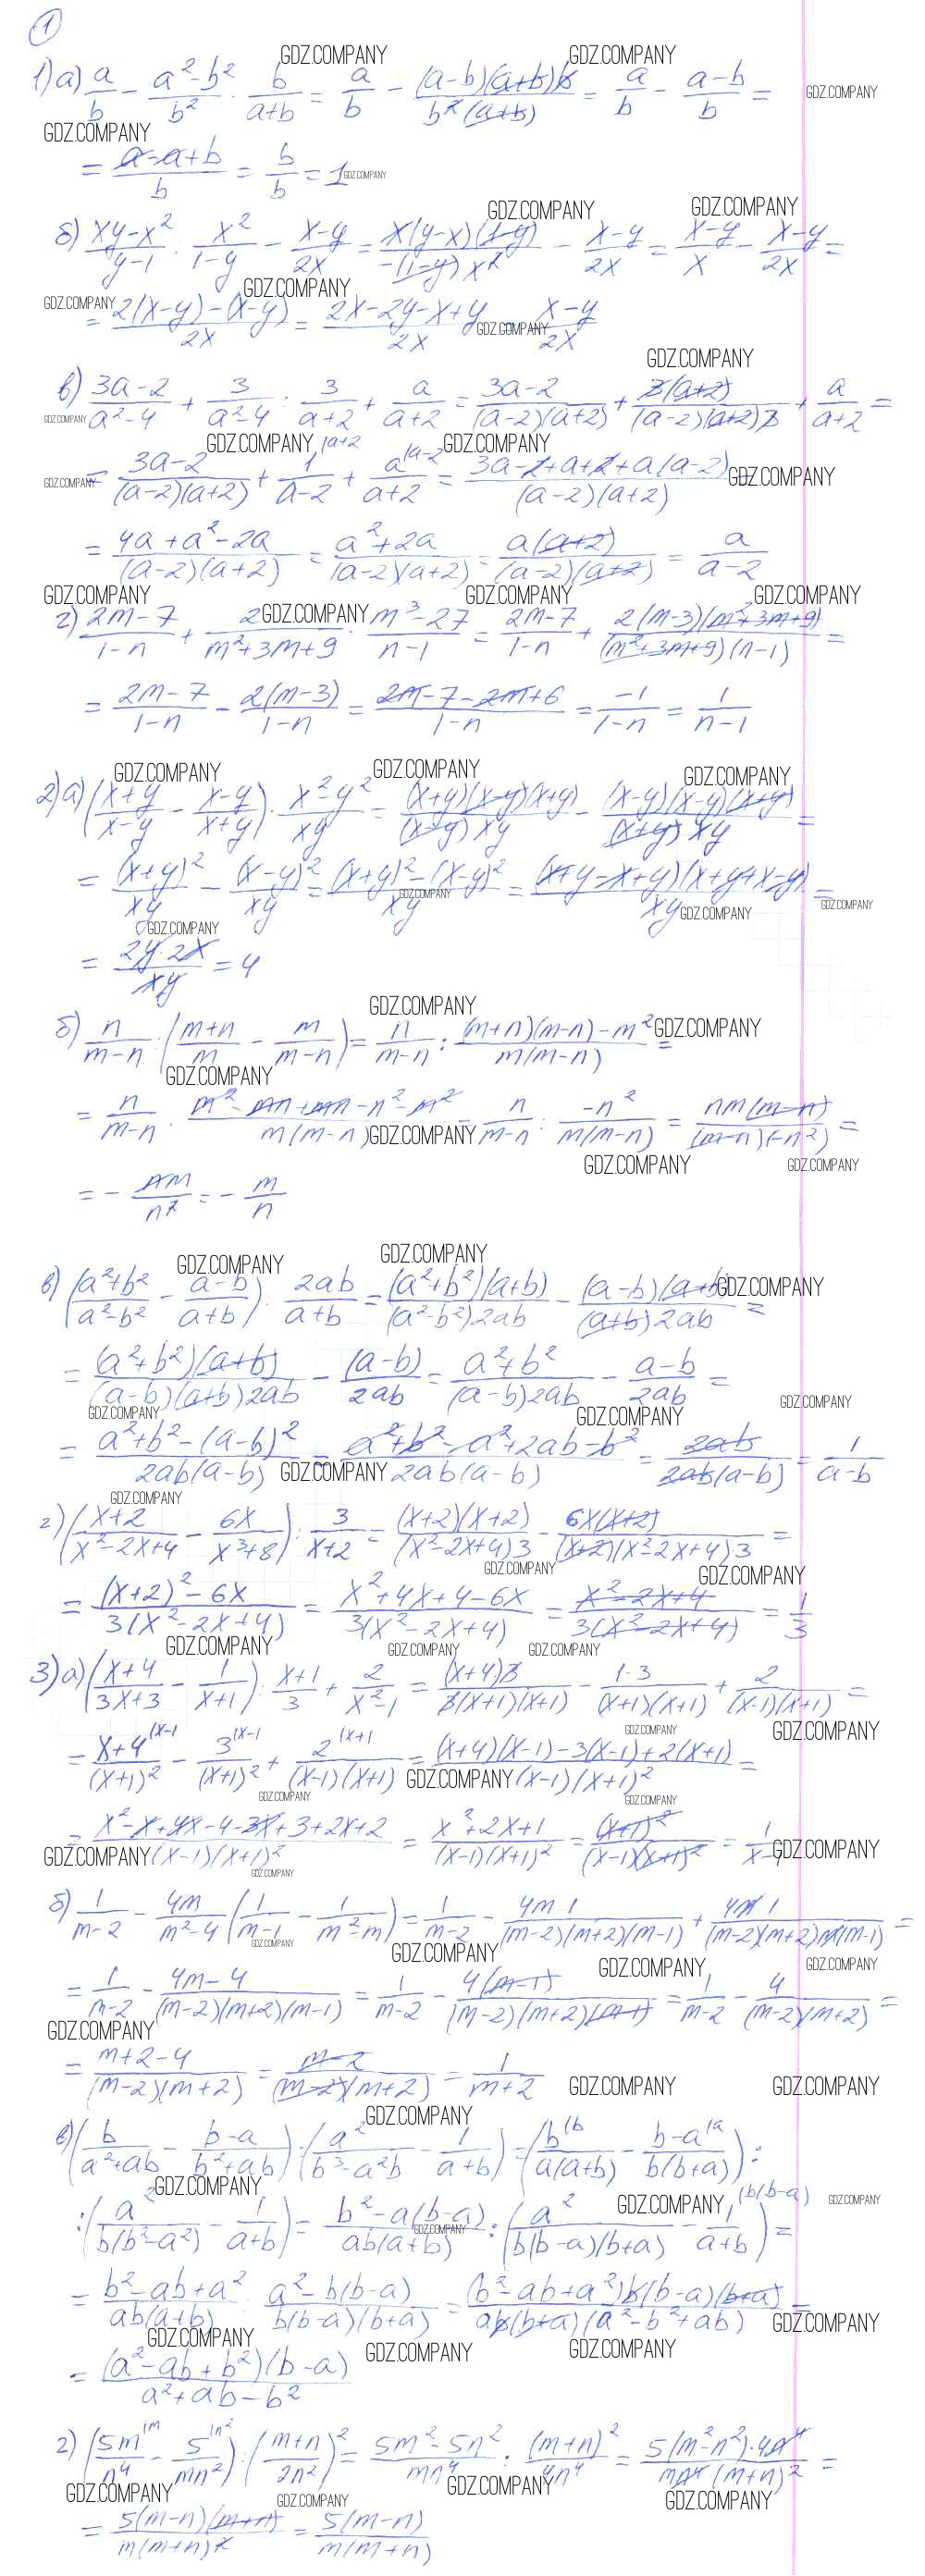 ①
1) а) a/b − (a²−b²)/b² · b/(a+b) = a/b − (a−b)(a+b)b/(b²(a+b)) = a/b − (a−b)/b =
= (a−a+b)/b = b/b = 1
б) (xy−x²)/(y−1) : x²/(1−y) − (x−y)/2x = x(y−x)(1−y)/(−(1−y)x²) − (x−y)/2x = (x−y)/x − (x−y)/2x =
= (2(x−y)−(x−y))/2x = (2x−2y−x+y)/2x = (x−y)/2x
в) (3a−2)/(a²−4) + 3/(a²−4) : 3/(a+2) + a/(a+2) = (3a−2)/((a−2)(a+2)) + 3(a+2)/((a−2)(a+2)3) + a/(a+2) =
= (3a−2)/((a−2)(a+2)) + 1/(a−2) |a+2 + a/(a+2) |a−2 = (3a−2+a+2+a(a−2))/((a−2)(a+2)) =
= (4a+a²−2a)/((a−2)(a+2)) = (a²+2a)/((a−2)(a+2)) = a(a+2)/((a−2)(a+2)) = a/(a−2)
г) (2m−7)/(1−n) + 2/(m²+3m+9) · (m³−27)/(n−1) = (2m−7)/(1−n) + 2(m−3)(m²+3m+9)/((m²+3m+9)(n−1)) =
= (2m−7)/(1−n) − 2(m−3)/(1−n) = (2m−7−2m+6)/(1−n) = −1/(1−n) = 1/(n−1)
2) а) ((x+y)/(x−y) − (x−y)/(x+y)) · (x²−y²)/xy = (x+y)(x−y)(x+y)/((x−y)xy) − (x−y)(x−y)(x+y)/((x+y)xy) =
= (x+y)²/xy − (x−y)²/xy = ((x+y)²−(x−y)²)/xy = (x+y−x+y)(x+y+x−y)/xy =
= 2y·2x/xy = 4
б) n/(m−n) : ((m+n)/m − m/(m−n)) = n/(m−n) : ((m+n)(m−n)−m²)/(m(m−n)) =
= n/(m−n) : (m²−mn+mn−n²−m²)/(m(m−n)) = n/(m−n) : −n²/(m(m−n)) = nm(m−n)/((m−n)(−n²)) =
= − nm/n² = − m/n
в) ((a²+b²)/(a²−b²) − (a−b)/(a+b)) : 2ab/(a+b) = (a²+b²)(a+b)/((a²−b²)2ab) − (a−b)(a+b)/((a+b)2ab) =
= (a²+b²)(a+b)/((a−b)(a+b)2ab) − (a−b)/2ab = (a²+b²)/((a−b)2ab) − (a−b)/2ab =
= (a²+b²−(a−b)²)/(2ab(a−b)) = (a²+b²−a²+2ab−b²)/(2ab(a−b)) = 2ab/(2ab(a−b)) = 1/(a−b)
г) ((x+2)/(x²−2x+4) − 6x/(x³+8)) : 3/(x+2) = (x+2)(x+2)/((x²−2x+4)3) − 6x(x+2)/((x+2)(x²−2x+4)·3) =
= ((x+2)²−6x)/(3(x²−2x+4)) = (x²+4x+4−6x)/(3(x²−2x+4)) = (x²−2x+4)/(3(x²−2x+4)) = 1/3
3) а) ((x+4)/(3x+3) − 1/(x+1)) : (x+1)/3 + 2/(x²−1) = (x+4)3/(3(x+1)(x+1)) − 1·3/((x+1)(x+1)) + 2/((x−1)(x+1)) =
= (x+4)/(x+1)² |x−1 − 3/(x+1)² |x−1 + 2/((x−1)(x+1)) |x+1 = ((x+4)(x−1)−3(x−1)+2(x+1))/((x−1)(x+1)²) =
= (x²−x+4x−4−3x+3+2x+2)/((x−1)(x+1)²) = (x²+2x+1)/((x−1)(x+1)²) = (x+1)²/((x−1)(x+1)²) = 1/(x−1)
б) 1/(m−2) − 4m/(m²−4) (1/(m−1) − 1/(m²−m)) = 1/(m−2) − 4m·1/((m−2)(m+2)(m−1)) + 4m·1/((m−2)(m+2)m(m−1)) =
= 1/(m−2) − (4m−4)/((m−2)(m+2)(m−1)) = 1/(m−2) − 4(m−1)/((m−2)(m+2)(m−1)) = 1/(m−2) − 4/((m−2)(m+2)) =
= (m+2−4)/((m−2)(m+2)) = (m−2)/((m−2)(m+2)) = 1/(m+2)
в) (b/(a²+ab) − (b−a)/(b²+ab)) : (a²/(b³−a²b) − 1/(a+b)) = (b/(a(a+b)) |b − (b−a)/(b(b+a)) |a) :
: (a²/(b(b²−a²)) − 1/(a+b)) = (b²−a(b−a))/(ab(a+b)) : (a²/(b(b−a)(b+a)) − 1/(a+b) |b(b−a)) =
= (b²−ab+a²)/(ab(a+b)) : (a²−b(b−a))/(b(b−a)(b+a)) = (b²−ab+a²)b(b−a)(b+a)/(ab(b+a)(a²−b²+ab)) =
= (a²−ab+b²)(b−a)/(a²+ab−b²)
г) (5m/n⁴ |m − 5/mn² |n²) : ((m+n)/2n²)² = (5m²−5n²)/mn⁴ : (m+n)²/4n⁴ = 5(m²−n²)·4n⁴/(mn⁴(m+n)²) =
= 5(m−n)(m+n)/(m(m+n)²) = 5(m−n)/(m(m+n))
GDZ.COMPANY